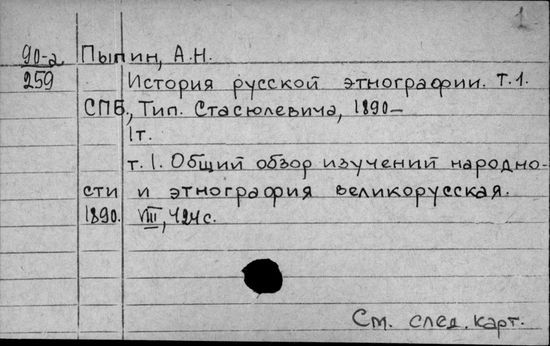 1
90-2 Пыпин, А.Н.
259 История русской этнографии. т.1.
СПБ., Тип. Стасюлевича, 1890-
1т.
т.1. Общий обзор изучений народно-
сти и этнография великорусская.
1890. VIII, 424с.
См. след. карт.